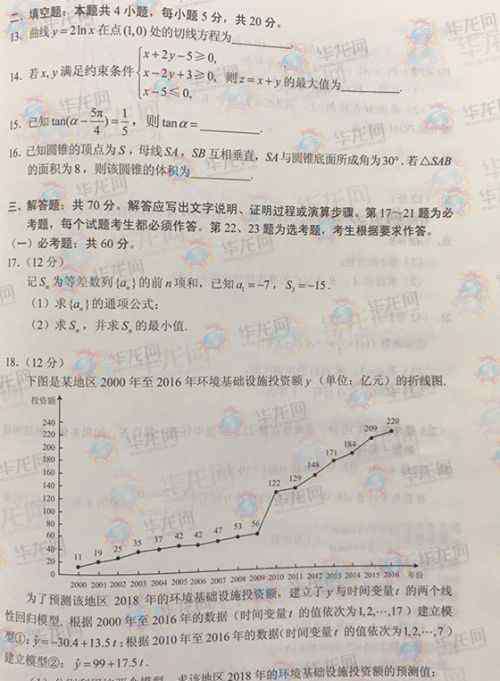 二、填空题：本题共4小题，每小题5分，共20分。
13. 曲线y=2lnx在点(1,0)处的切线方程为________.
14. 若x,y满足约束条件{x+2y-5≥0, x-2y+3≥0, x-5≤0, 则z=x+y的最大值为________.
15. 已知tan(α-5π/4)=1/5，则tanα=________.
16. 已知圆锥的顶点为S，母线SA，SB互相垂直，SA与圆锥底面所成角为30°.若△SAB
的面积为8，则该圆锥的体积为________.
三、解答题：共70分。解答应写出文字说明、证明过程或演算步骤。第17～21题为必
考题，每个试题考生都必须作答。第22、23题为选考题，考生根据要求作答。
（一）必考题：共60分。
17.（12分）
记Sₙ为等差数列{aₙ}的前n项和，已知a₁=-7，S₃=-15.
（1）求{aₙ}的通项公式；
（2）求Sₙ，并求Sₙ的最小值.
18.（12分）
下图是某地区2000年至2016年环境基础设施投资额y（单位：亿元）的折线图.
投资额
240
220
200
180
160
140
120
100
80
60
40
20
0
11 19 25 35 37 42 42 47 53 56 122 129 148 171 184 209 220
2000 2001 2002 2003 2004 2005 2006 2007 2008 2009 2010 2011 2012 2013 2014 2015 2016 年份
为了预测该地区2018年的环境基础设施投资额，建立了y与时间变量t的两个线
性回归模型.根据2000年至2016年的数据（时间变量t的值依次为1,2,…,17）建立模
型①：ŷ=-30.4+13.5t；根据2010年至2016年的数据（时间变量t的值依次为1,2,…,7）
建立模型②：ŷ=99+17.5t.
求该地区2018年的环境基础设施投资额的预测值；
华龙网